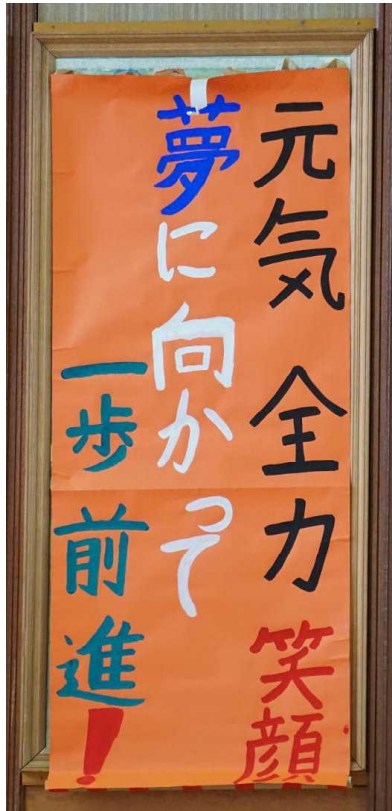 元気 全力 笑顔
夢に向かって
一歩前進！